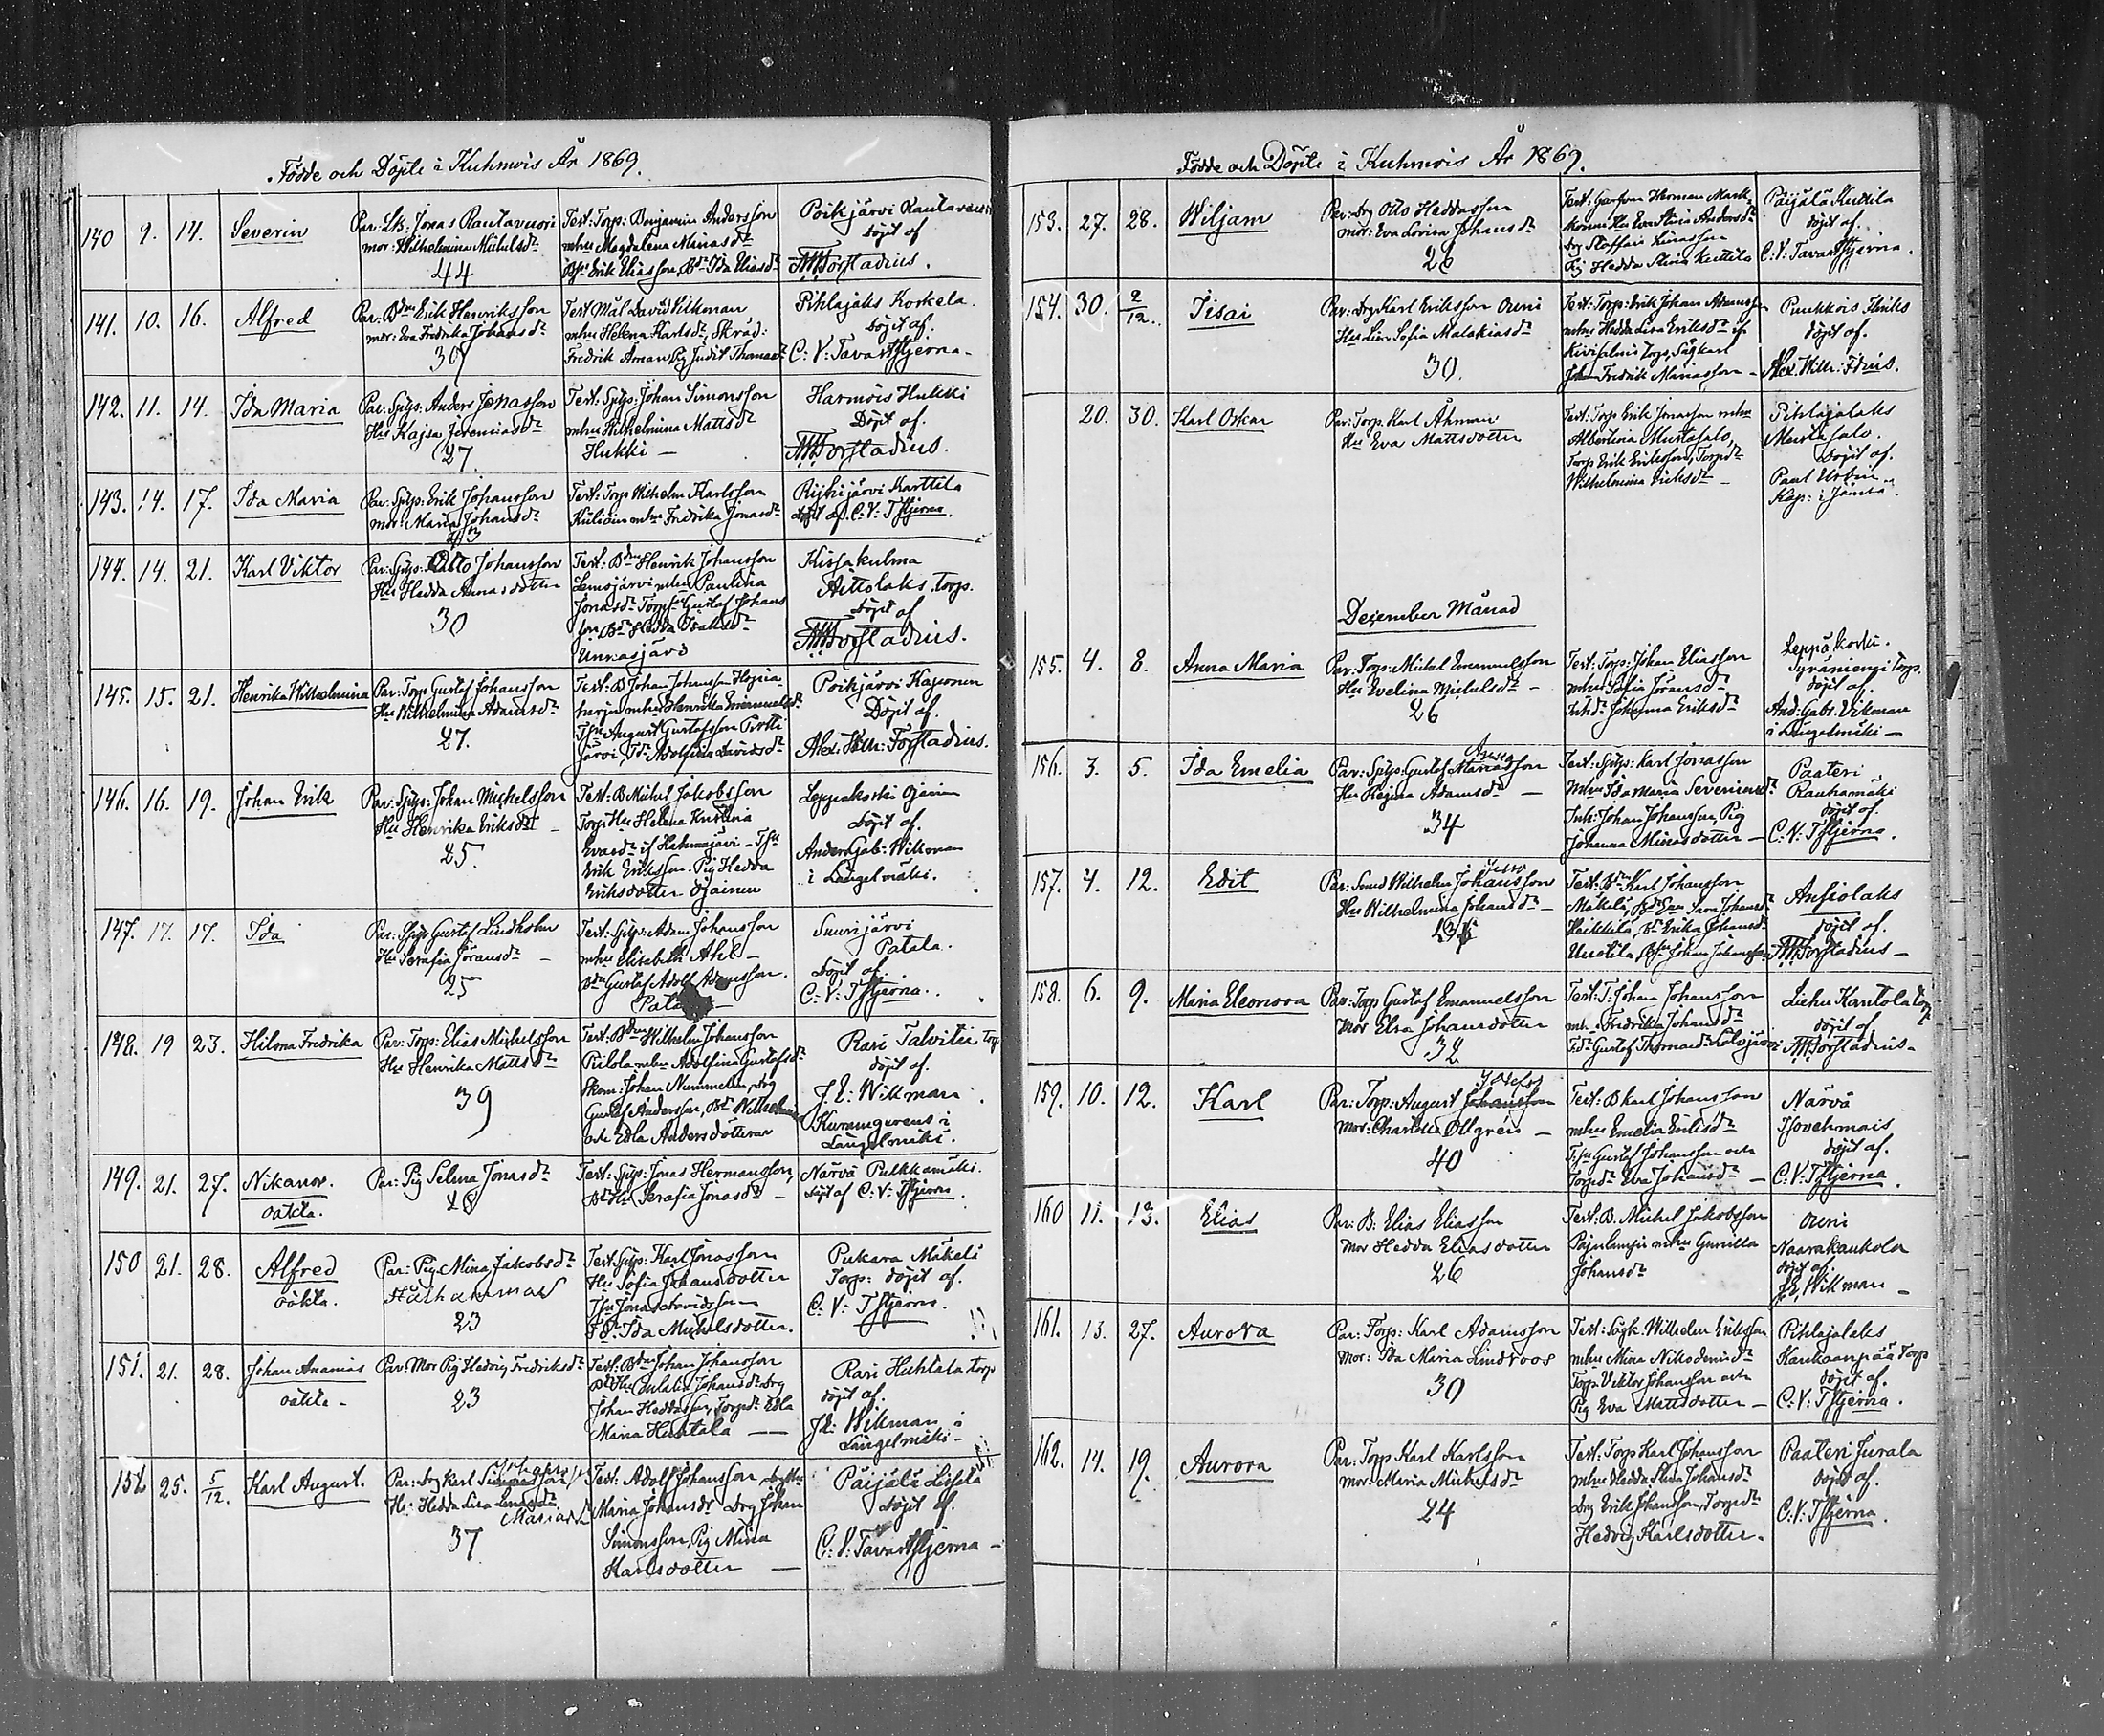 Födde och Döpte i Kuhmois År 1869.
140 9. 14. Severin
Par: Lts. Jonas Rautavuori
mor: Wilhelmina Michelsdr
44
Test: Torp: Benjamin Andersson
mhu Magdalena Minasdr
Erik Eliasson, Ida Eliasdr
Poikjärvi Rautavuori
döpt af
Forstadius.
141. 10. 16. Alfred
Par: Bdn Erik Henriksson
mor: Eva Fredrika Johansdr
30
Test Mål David Vikman
mhu Helena Karlsdr, Skräd:
Fredrik Åman, Pig Judit Thomasdr
Pihlajaks Koskela.
döpt af.
C: V: Tavaststjerna.
142. 11. 14. Ida Maria
Par: Sytgs: Anders Jonasson
Hu Kajsa Jeremiasdr
27
Test: Sytgs: Johan Simonsson
mhu Wilhelmina Mattsdr
Hukki —
Harmois Hukki
Döpt af.
Forstadius.
143. 14. 17. Ida Maria
Par: Sytgs: Erik Johansson
mor: Maria Johansdr
43
Test: Torp Wilhelm Karlsson
mhu Fredrika Jonasdr
Harttila
döpt af C: V: Tstjerna.
144. 14. 21. Karl Viktor
Par: Otto Johansson
Hu Hedda Annasdotter
30
Test: Bdn Henrik Johansson
Lemsjärvi mhu Paulina
Jonasdr Torps Gustaf Johans
son Hedda
Unnasjärvi
Kissakulma
Aittolaks, torp.
döpt af
Forstadius.
145. 15. 21. Henrika Wilhelmina
Par: Torp Gustaf Johansson
Hu Wilhelmina Adamsdr
27.
Test: B Johan Johansson
harju mhu Henrika Emanuelsdr
August Gustafsson Pirtti
järvi, Adolfina Davidsdr
Poikjärvi Kaponen
Döpt af.
Alex: Wilh: Forstadius.
146. 16. 19. Johan Erik
Par: Sytgs: Johan Michelsson
Hu Henrika Eriksdr —
25.
Test: B Michel Jakobsson
Torp Hu Helena Kristina
Evasdr
Erik Eriksson. Pig Hedda
Eriksdotter Ojainen
Leppäkoski Ojainen
döpt af.
Anders Gab: Wilkman
i Längelmäki.
147. 17. 17. Ida
Par: Sytgs Gustaf Lindholm
Hu Serafia Göransdr —
25
Test: Sytgs: Adam Johansson
mhu Elisabeth Ahl —
Gustaf Adolf Adamsson.
Patala —
Suurijärvi
Patala.
döpt af
C: V: Tstjerna.
148. 19 23. Hilma Fredrika
Par: Torp: Elias Michelsson
Hu Henrika Mattsdr
39
Test: Bdn Wilhelm Johansson
mhu Adolfina Gustafsdr
Skom: Johan Nummelin, drg
Gustaf Andersson, Wilhelmina
och Edla Andersdöttrar
Rasi Talvitie torp
döpt af.
J. E: Wilkman
i
Längelmäki.
149. 21. 27. Nikanor.
oäkta.
Par: Pig Selma Jonasdr
28
Test: Sytgs: Jonas Hermansson,
Hu Serafia Jonasdr —
Närvä Pulkkamäki.
döpt af C: V: Tstjerna.
150 21. 28. Alfred
oäkta.
Par: Pig Mina Jakobsdr
23
Test: Sytgs: Karl Jonasson
Hu Sofia Johansdotter
Jonas Davidsson
Ida Michelsdotter.
Pukara Mäkelä
Torp: döpt af.
C: V: Tstjerna.
151. 21. 28. Johan Ananias
oäkta.
Par: Mor Pig Hedvig Fredriksdr
23
Test: Bdn Johan Johansson
Hu Eulalia Johansdr drg
Johan Heddasson, Torpdr Edla
Maria Huhtala —
Rasi Huhtala torp
döpt af.
J: E: Wilkman i
Längelmäki —
152 25. 5/12. Karl August.
Par: drg Karl Simonsson
Hu: Hedda Lisa
Mariasdr
37
Test: Adolf Johansson
Maria Johansdr Drg Johan
Simonsson, Pig Miina
Karlsdotter —
Päijälä
döpt af.
C: V: Tavaststjerna —
Födde och Döpte i Kuhmois År 1869.
153. 27. 28. Wiljam
Par: Drg Otto Heddasson
mor: Eva Lovisa Johansdr
26
Test: Herman Mark
Hu Eva Stina Andersdr
drg Staffan
Pig Hedda Stina Kuttila
Päijälä Kuttila
döpt af.
C: V: Tavaststjerna.
154. 30. 2/12. Iisai
Par: Drg Karl Eriksson Ouni
Hu Lisa Sofia Malakiasdr
30.
Test: Torp: Erik Johan Adamsson
mhu Hedda Lisa Eriksdr
Torp, Sågkarl
Fredrik Mariasson —
Puukkois
döpt af.
Alex. Wilh: Fdius.
20. 30. Karl Oskar
Par: Torp. Karl Åhman
Hu Eva Mattsdotter
Test: Torp Erik Jonasson mhu
Albertina Mustasalo,
Torp Erik Eriksson, Torpdr
Wilhelmina Eriksdr —
Pihlajalaks
Mustasalo.
döpt af.
Paul Urbin
Kap: i Jämsä.
December Månad
155. 4. 8. Anna Maria
Par: Torp: Michel Emanuelsson
Hu Evelina Michelsdr —
26
Test: Torp: Johan Eliasson
mhu Sofia Göransdr
Inhdr Johanna Eriksdr
Leppäkoski.
torp.
döpt af.
And: Gabr: Vikman
i Längelmäki —
156. 3. 5. Ida Emelia
Par: Sytgs: Gustaf Mariasson
Hu Regina Adamsdr —
34
Test: Sytgs: Karl Jonasson
mhu Ida Maria Severinsdr
Inh: Johan Johansson, Pig
Johanna Minasdotter —
Paateri
Rauhamäki
döpt af
C: V: Tstjerna.
157. 4. 12. Edit
Par: Smed Wilhelm Johansson
Hu Wilhelmina Johansdr —
Test: Bdn Karl Johansson
Mäkelä, Johansdr
Heikkilä, Erika Johansdr
Uusitila, Johan Johansson
Ansiolaks
döpt af.
Forstadius —
158. 6. 9. Maria Eleonora
Par: Torp Gustaf Emanuelsson
Mor Elsa Johansdotter
32
Test: T: Johan Johansson
mhu Fredrika Johansdr
Gustaf
Liehu Kantola torp
döpt af
Forstadius —
159. 10. 12. Karl
Par: Torp: August Johansson
Mor: Charlotta Ollgrén —
40
Test: B Karl Johansson
mhu Emelia Eriksdr
Gustaf Johansson och
Torpdr Eva Johansdr —
Närvä
döpt af.
C: V: Tstjerna.
160 11. 13. Elias
Par: B: Elias Eliasson
Mor Hedda Eliasdotter
26
Test: B. Michel Jakobsson
mhu Gunilla
Johansdr
Ouni
Naarakaukola
döpt af.
J: E: Wilkman —
161. 13. 27. Aurora
Par: Torp: Karl Adamsson
Mor: Ida Maria Lindroos
30
Test: Sågk. Wilhelm Eriksson
mhu Mina Nikodemusdr
Torp. Viktor Johansson och
Pig Eva Mattsdotter —
Pihlajalaks
Kauhaanpää torp
döpt af.
C: V: Tstjerna.
162. 14. 19. Aurora
Par: Torp Karl Karlsson
mor: Maria Michelsdr
24
Test: Torp Karl Johansson
mhu Hedda Stina Johansdr
drg Erik Johansson, Torpdr
Hedvig Karlsdotter.
Paateri Juvala
döpt af.
C: V: Tstjerna.